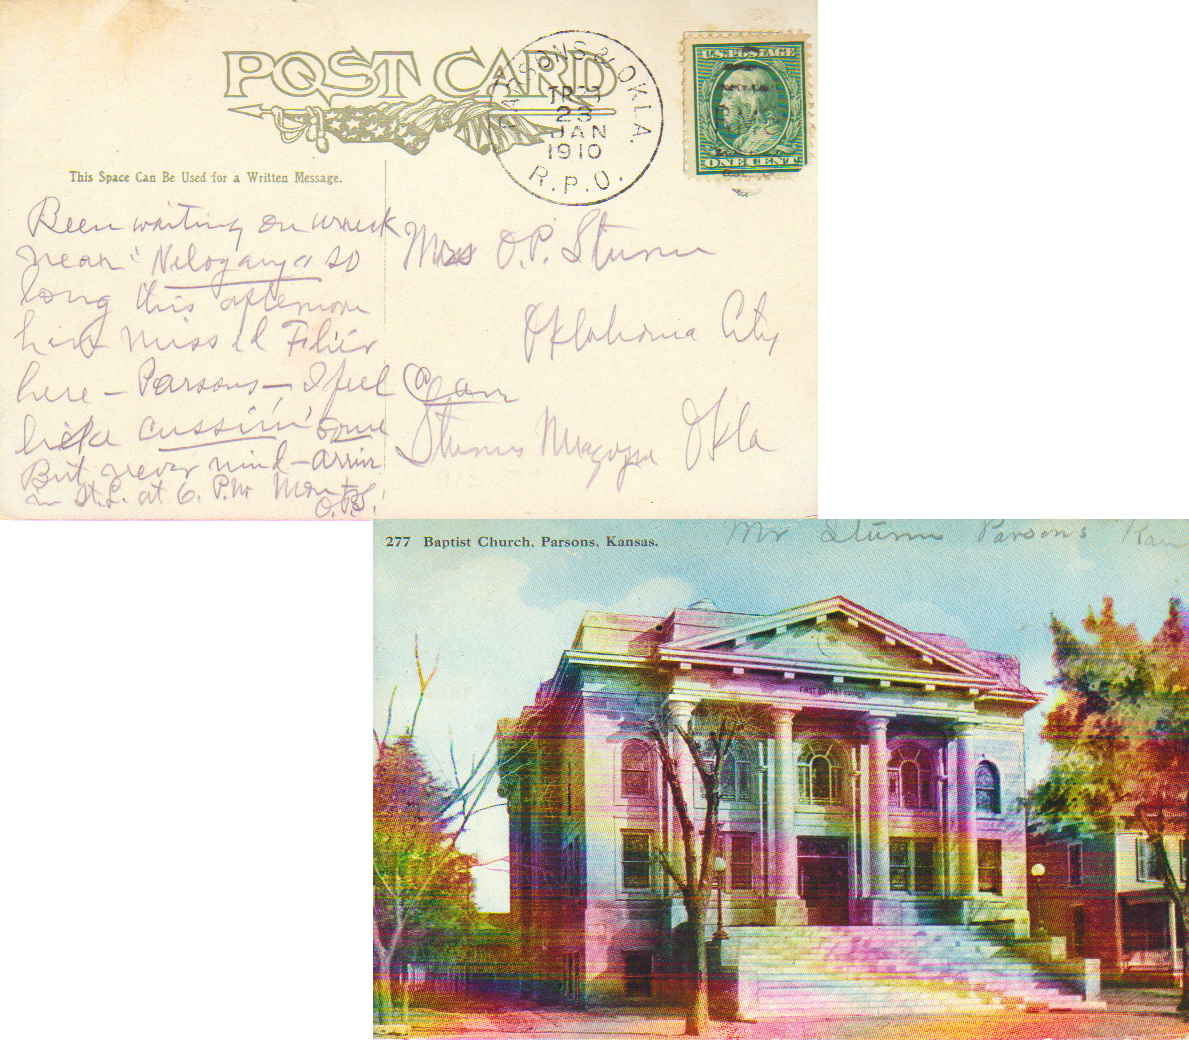 POST CARD
PARSONS & OKLA.
TR
23
JAN
1910
R.P.O.
U.S. POSTAGE
ONE CENT
This Space Can Be Used for a Written Message.
Been waiting on wreck
near "Nelogany" so
long this afternoon
have missed Flier
here - Parsons - I feel
like cussin' some
But never mind - arrive
in St. L. at 6. P.M.
O.P.S.
Mrs O.P. Sturm
Oklahoma City
Okla
Sturms Magazine
277 Baptist Church, Parsons, Kansas.
Mr Sturm Parsons Kan
FIRST BAPTIST CHURCH